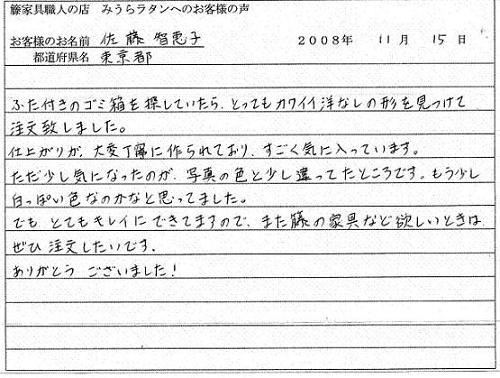 籐家具職人の店 みうらラタンへのお客様の声
お客様のお名前 佐藤 智恵子 2008年 11月 15日
都道府県名 東京都
ふた付きのゴミ箱を探していたら、とってもカワイイ洋なしの形を見つけて
注文致しました。
仕上がりが、大変丁寧に作られており、すごく気に入っています。
ただ少し気になったのが、写真の色と少し違ってたところです。もう少し
白っぽい色なのかなと思ってました。
でも とてもキレイにできてますので、また籐の家具など欲しいときは
ぜひ 注文したいです。
ありがとう ございました!